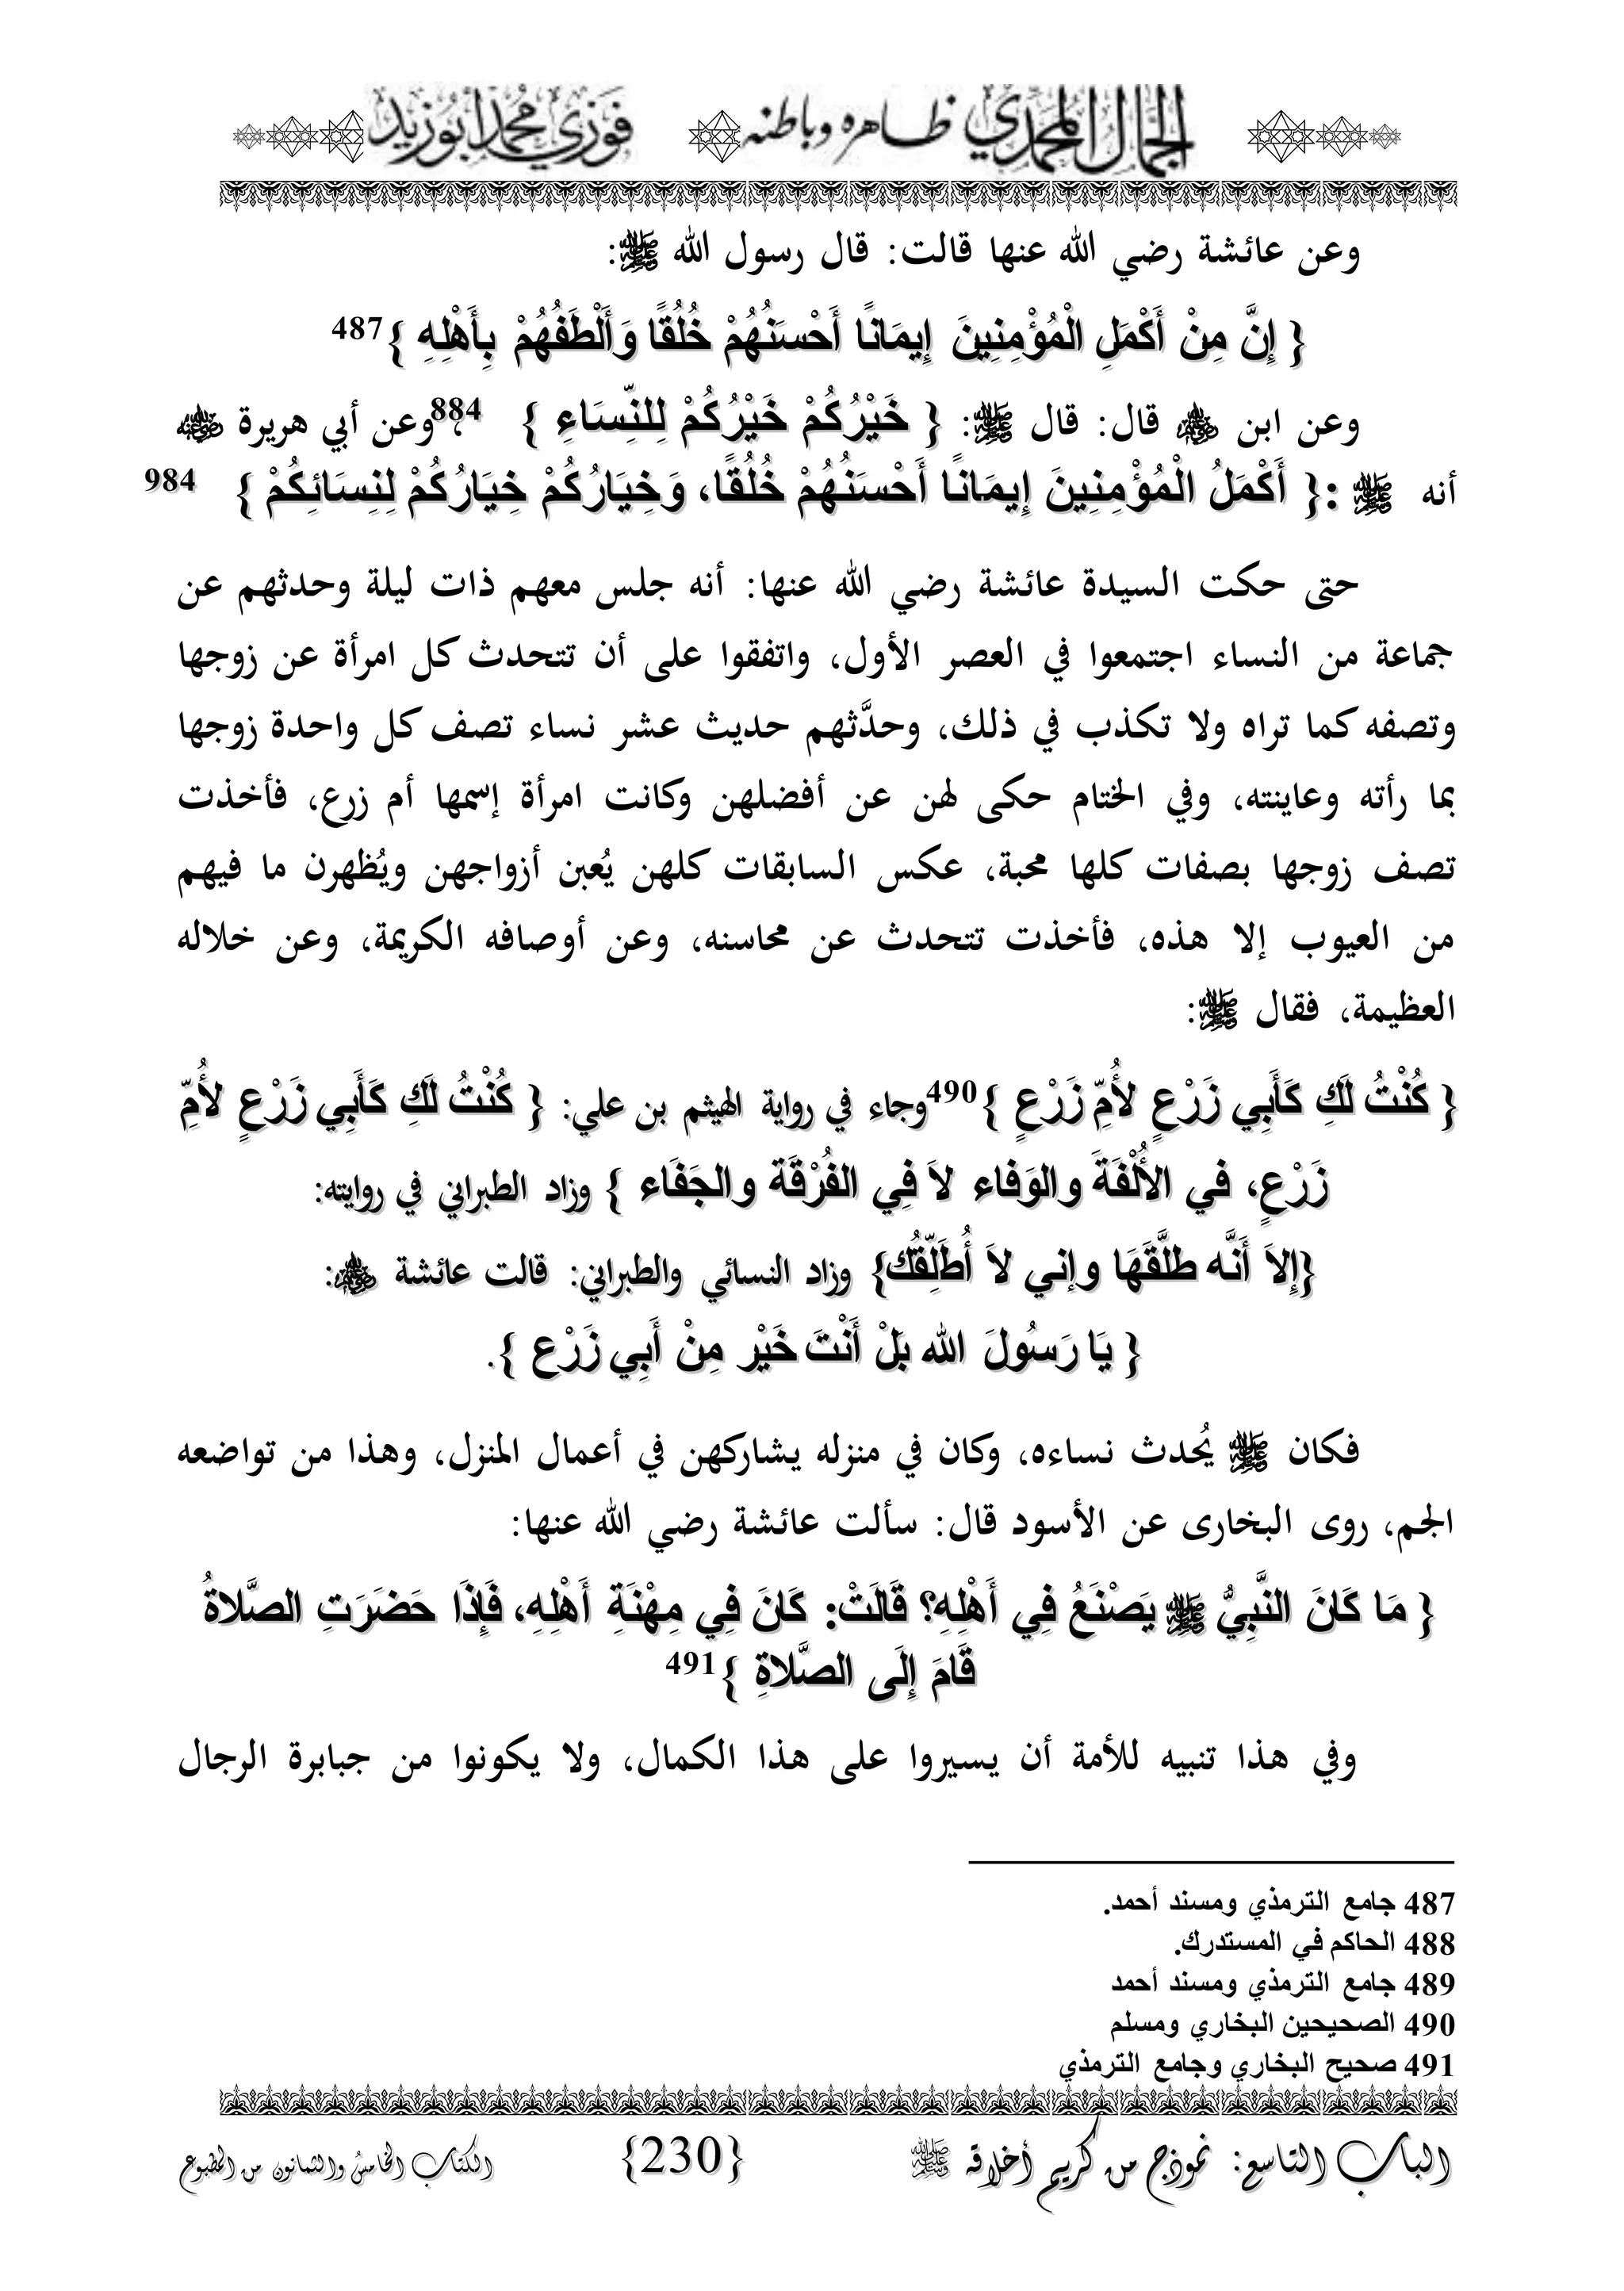 الجمال المحمدي ظاهره وباطنه فوزي محمد أبوزيد
وعن عائشة رضي الله عنها قالت: قال رسول الله ﷺ:
{ إِنَّ مِنْ أَكْمَلِ الْمُؤْمِنِينَ إِيمَانًا أَحْسَنُهُمْ خُلُقًا وَأَلْطَفُهُمْ بِأَهْلِهِ }487
وعن ابن قال: قال ﷺ: { خَيْرُكُمْ خَيْرُكُمْ لِلنِّسَاءِ } 884، وعن أبي هريرة
أنه ﷺ :{ أَكْمَلُ الْمُؤْمِنِينَ إِيمَانًا أَحْسَنُهُمْ خُلُقًا، وَخِيَارُكُمْ خِيَارُكُمْ لِنِسَائِكُمْ } 984
حتى حكت السيدة عائشة رضي الله عنها: أنه جلس معهم ذات ليلة وحدثهم عن
جماعة من النساء اجتمعوا في العصر الأول، واتفقوا على أن تتحدث كل امرأة عن زوجها
وتصفه كما تراه ولا تكذب في ذلك، وحدَّثهم حديث عشر نساء تصف كل واحدة زوجها
بما رأته وعاينته، وفي الختام حكى لهن عن أفضلهن وكانت امرأة إسمها أم زرع، فأخذت
تصف زوجها بصفات كلها محبة، عكس السابقات كلهن يُعبن أزواجهن ويُظهرن ما فيهم
من العيوب إلا هذه، فأخذت تتحدث عن محاسنه، وعن أوصافه الكريمة، وعن خلاله
العظيمة، فقال ﷺ:
{ كُنْتُ لَكِ كَأَبِي زَرْعٍ لأُمِّ زَرْعٍ }490وجاء في رواية الهيثم بن علي: { كُنْتُ لَكِ كَأَبِي زَرْعٍ لأُمِّ
زَرْعٍ، في الأُلْفَةَ والوَفاء لاَ فِي الفُرْقَة والجَفَاء } وزاد الطبراني في روايته:
{إِلاَ أَنَّه طلَّقَهَا وإني لاَ أُطَلِّقُك} وزاد النسائي والطبراني: قالت عائشة :
{ يَا رَسُولَ الله بَلْ أَنْتَ خَيْر مِنْ أَبِي زَرْع }.
فكان ﷺ يُحدث نساءه، وكان في منزله يشاركهن في أعمال المنزل، وهذا من تواضعه
الجم، روى البخارى عن الأسود قال: سألت عائشة رضي الله عنها:
{ مَا كَانَ النَّبِيُّ ﷺ يَصْنَعُ فِي أَهْلِهِ؟ قَالَتْ: كَانَ فِي مِهْنَةِ أَهْلِهِ، فَإِذَا حَضَرَتِ الصَّلاةُ
قَامَ إِلَى الصَّلاةِ }491
وفي هذا تنبيه للأمة أن يسيروا على هذا الكمال، ولا يكونوا من جبابرة الرجال
487 جامع الترمذي ومسند أحمد.
488 الحاكم في المستدرك.
489 جامع الترمذي ومسند أحمد
490 الصحيحين البخاري ومسلم
491 صحيح البخاري وجامع الترمذي
الباب التاسع: نموذج من كريم أخلاقه ﷺ {230} الكتاب الخامس والثمانون من المطبوع